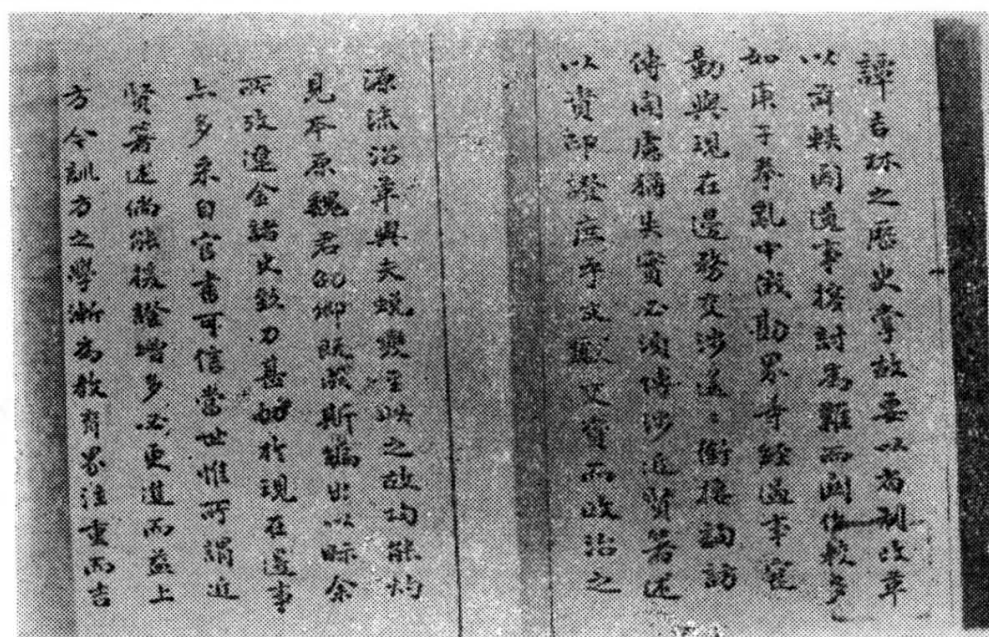 譚吉林之歷史掌故要以省制改革
以前軼聞遺事搜討為難而關係較多
如庚子拳亂中俄勘界等經過事實
動與現在邊務交涉遙遙銜接詢訪
傳聞慮猶失實必須博涉近賢著述
以資印證庶乎文獻交資而政治之
源流沿革與夫蛻變至此之故均能灼
見本原魏君邵卿既成斯編出以眎余
所攷遼金諸史致力甚劬於現在邊事
亦多采自官書可信當世惟所謂近
賢著述倘能援證增多必更進而益上
方今訓方之學漸為教育界注重而吉